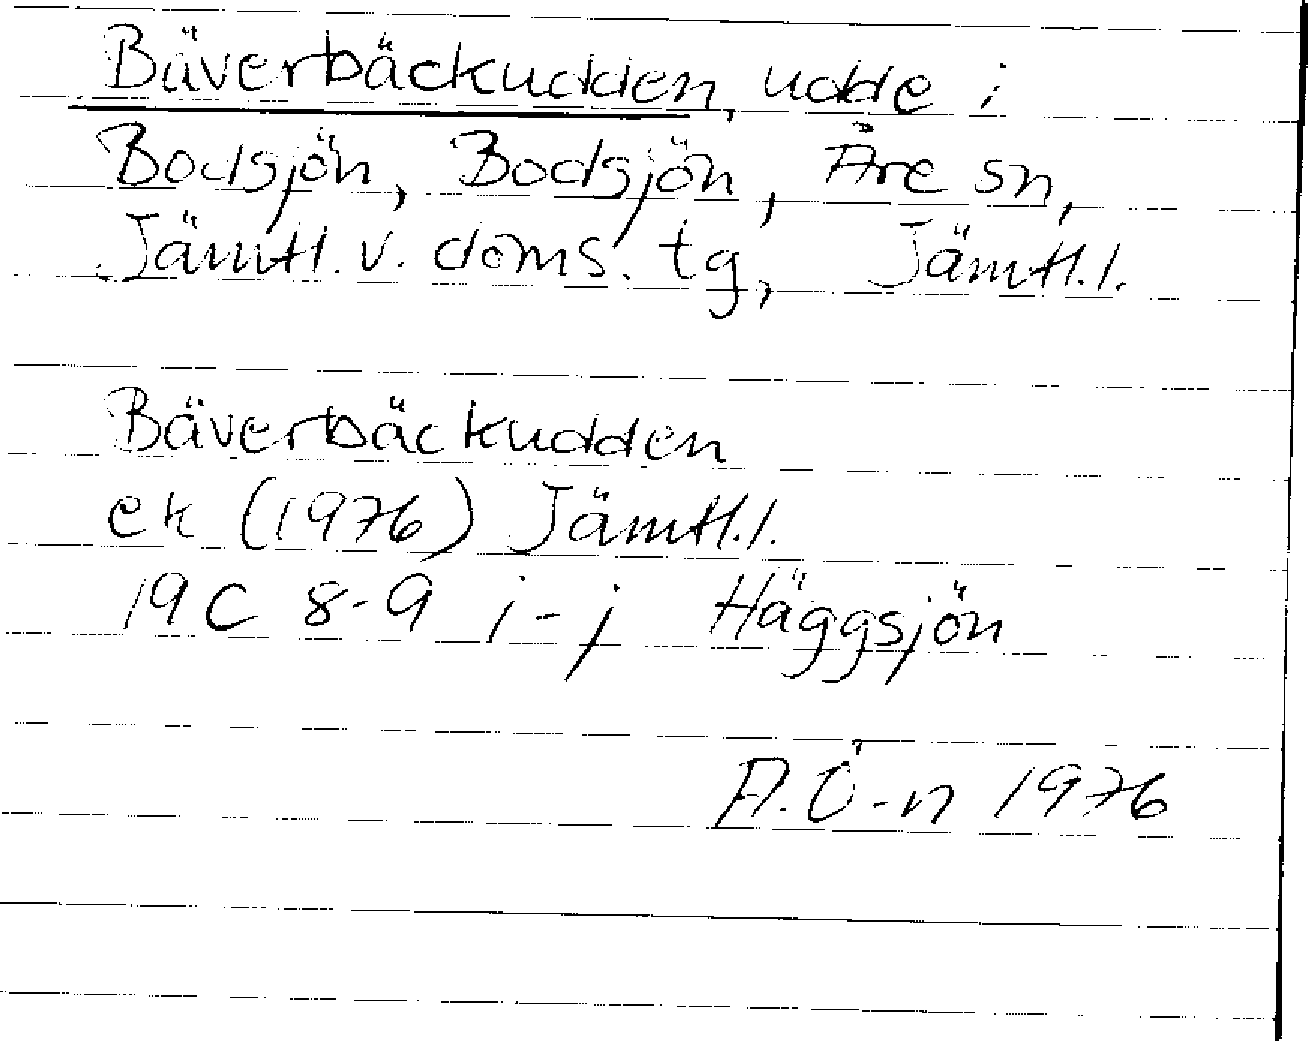 Bäverbäckudden, udde i
Bodsjön, Bodsjön, Åre sn,
Jämtl. v. doms. tg, Jämtl.l.
Bäverbäckudden
ek (1976) Jämtl.l.
19C 8-9 i-j Häggsjön
A.Ö-n 1976